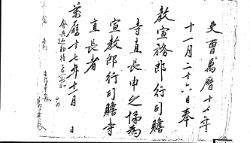 吏曹萬曆十七年
十一月二十六日奉
教宣務郎行司贍
寺直長申之悌為
宣教郎行司贍寺
直長者
萬曆十七年十一月 日